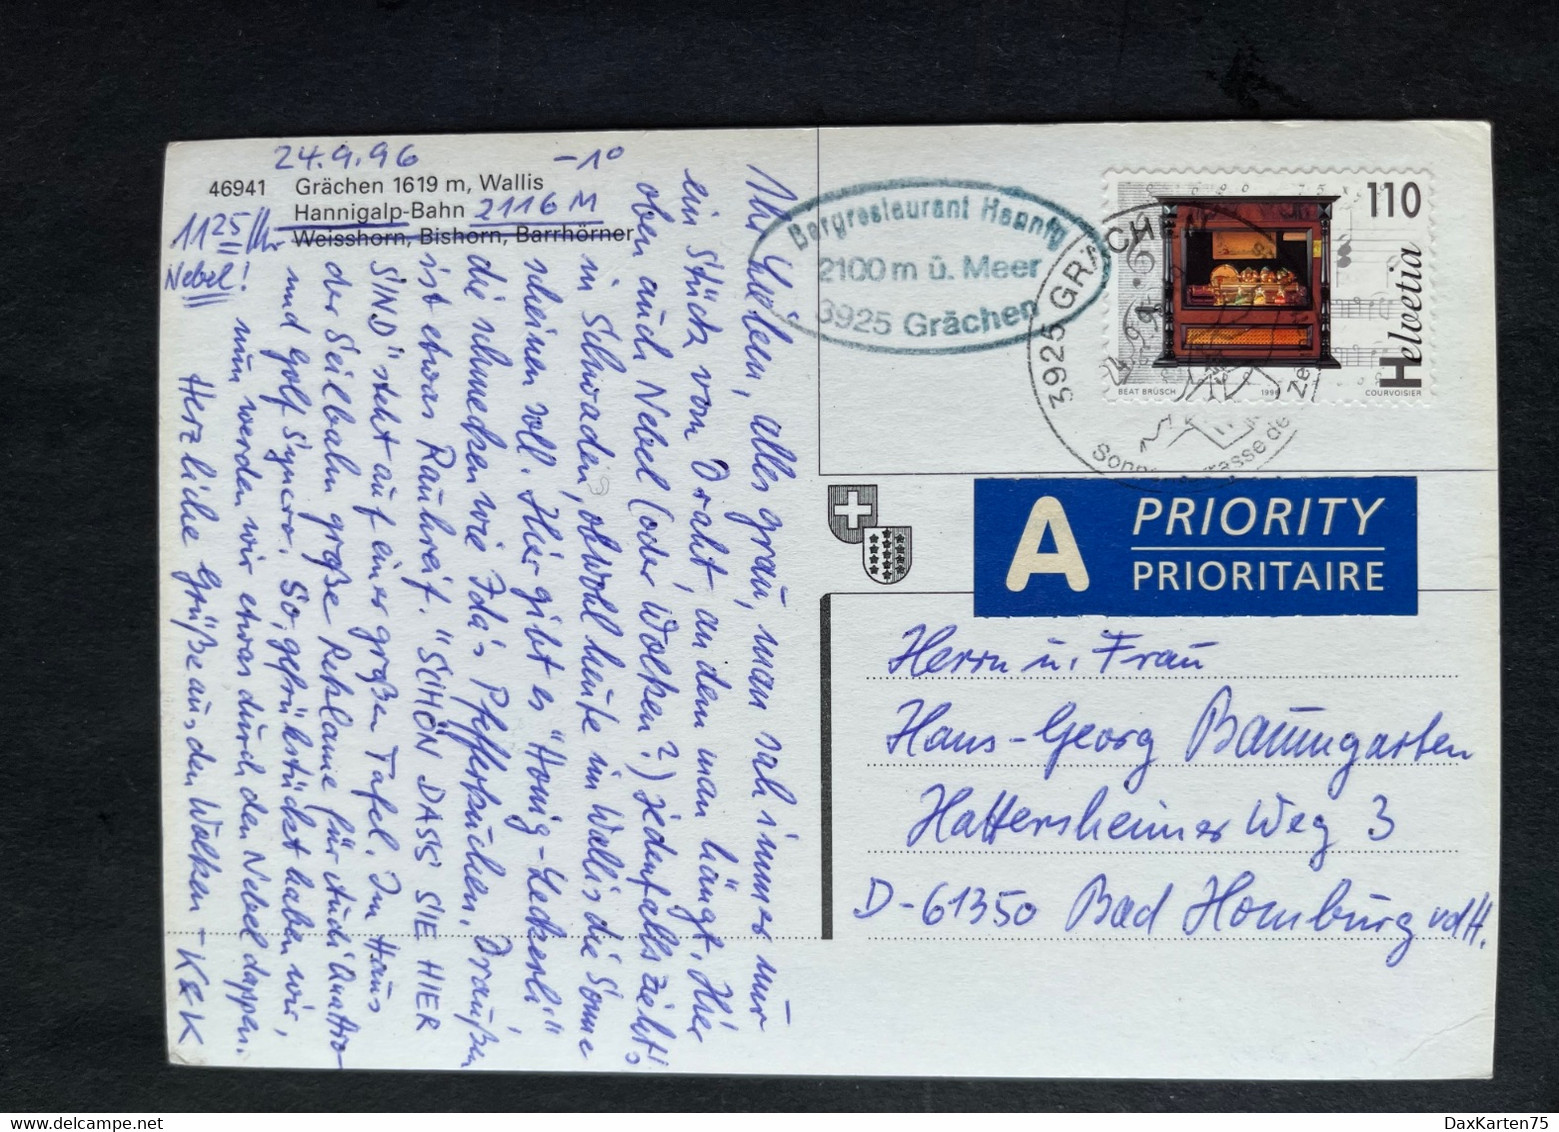 24.9.96 -1°
46941 Grächen 1619 m, Wallis
Hannigalp-Bahn 2116 M
Weisshorn, Bishorn, Barrhörner
11 25 Uhr
Nebel!
Ihr Lieben, alles grau, man sah immer nur
ein Stück vom Draht, an dem man hängt. Hier
oben auch Nebel (oder Wolken?) Jedenfalls zieht's
in Schwaden, obwohl heute im Wallis die Sonne
scheinen soll. Hier gibt es "Honig-Leckerli"
die schmecken wie Ida's Pfefferkuchen. Draußen
ist etwas Rauhreif. "SCHÖN DASS SIE HIER
SIND" steht auf einer großen Tafel. Im Haus
der Seilbahn große Reklame für Audi Quattro
und Golf Syncro. So, gefrühstückt haben wir,
nun werden wir etwas durch den Nebel dappen.
Herzliche Grüße aus den Wolken - K&K
Bergrestaurant Hannig
2100 m ü. Meer
3925 Grächen
3925 GRÄCHEN
110
Helvetia
BEAT BRÜSCH 1996 COURVOISIER
A PRIORITY
PRIORITAIRE
Herrn u. Frau
Hans-Georg Baumgarten
Hattersheimer Weg 3
D-61350 Bad Homburg vdH.
delcampe.net
DaxKarten75